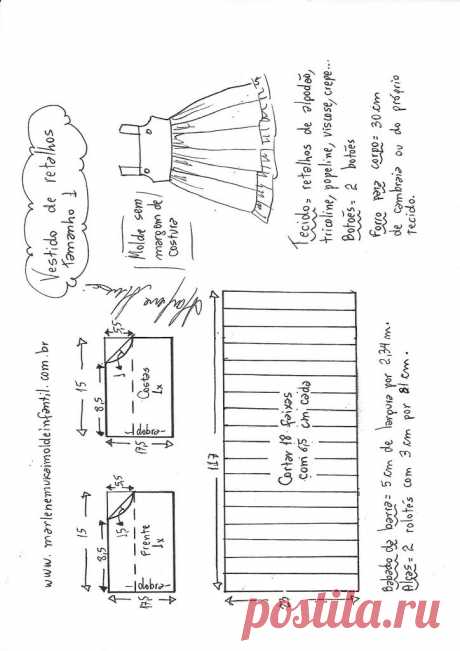 Vestido de retalhos
tamanho 1
Molde sem
margem de
costura
Tecido = retalhos de algodão,
tricoline, popeline, viscose, crepe...
Botões = 2 botões
Forro para corpo = 30 cm
de cambraia ou do próprio
tecido.
www.marlenemukaimoldeinfantil.com.br
15
8,5
5,5
1,5
Frente
1x
dobra
17,5
15
8,5
5,5
1
Costas
1x
dobra
17,5
117
Cortar 18 faixas
com 6,5 cm cada
Babado da barra = 5 cm de largura por 2,34 m.
Alças = 2 rolotês com 3 cm por 81 cm.
postila.ru